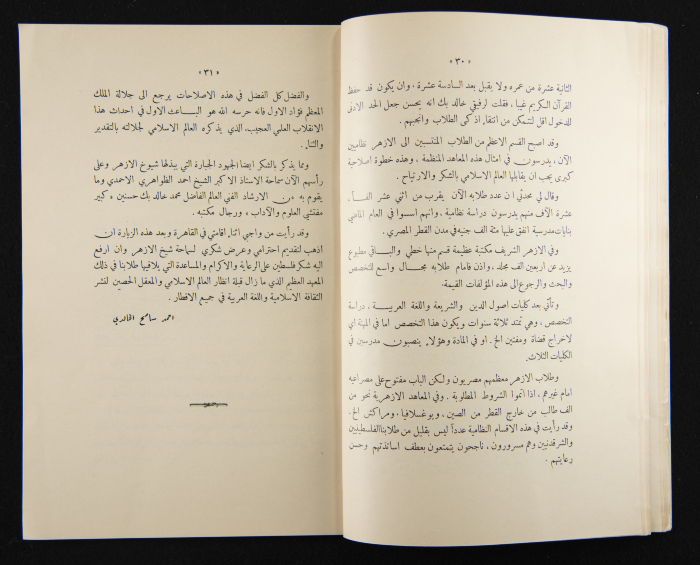 «٣٠»
الثانية عشرة من عمره ولا يقبل بعد السادسة عشرة ، وان يكون قد حفظ
القرآن الكريم غيبا ، فقلت لرفيقي خالد بك انه يحسن جعل الحد الادنى
للدخول اقل لنتمكن من انتقاء اذكى الطلاب وانجبهم .
وقد اصبح القسم الاعظم من الطلاب المنتسبين الى الازهر نظاميين
الآن ، يدرسون في امثال هذه المعاهد المنظمة ، وهذه خطوة اصلاحية
كبرى يجب ان يقابلها العالم الاسلامي بالشكر والارتياح .
وقال لي محدثي ان عدد طلابه الآن يقرب من اثني عشر الفاً ،
عشرة الآف منهم يدرسون دراسة نظامية ، وانهم اسسوا في العام الماضي
بنايات مدرسية انفق عليها مئة الف جنيه في مدن القطر المصري .
وفي الازهر الشريف مكتبة عظيمة قسم منها خطي والباقي مطبوع
يزيد عن اربعين الف مجلد ، واذن فامام طلابه مجال واسع للتخصص
والبحث والرجوع الى هذه المؤلفات القيمة .
وتأتي بعد كليات اصول الدين والشريعة واللغة العربية ، دراسة
التخصص ، وهي تمتد ثلاثة سنوات ويكون هذا التخصص اما في المهنة اي
لاخراج قضاة ومفتين الخ . او في المادة وهؤلاء ينصبون مدرسين في
الكليات الثلاث .
وطلاب الازهر معظمهم مصريون ولكن الباب مفتوح على مصراعيه
امام غيرهم ، اذا اتموا الشروط المطلوبة . وفي المعاهد الازهرية نحو من
الف طالب من خارج القطر من الصين ، ويوغسلافيا ، ومراكش الخ .
وقد رأيت في هذه الاقسام النظامية عدداً ليس بقليل من طلابنا الفلسطينيين
والشرقدنيين وهم مسرورون ، ناجحون يتمتعون بعطف اساتذتهم وحسن
رعايتهم .
«٣١»
والفضل كل الفضل في هذه الاصلاحات يرجع الى جلالة الملك
المعظم فؤاد الاول فانه حرسه الله هو الباعث الاول في احداث هذا
الانقلاب العلمي العجيب ، الذي يذكره العالم الاسلامي لجلالته بالتقدير
والثناء .
ومما يذكر بالشكر ايضا الجهود الجبارة التي يبذلها شيوخ الازهر وعلى
رأسهم الآن سماحة الاستاذ الاكبر الشيخ احمد الظواهري الاحمدي وما
يقوم به من الارشاد الفني العالم الفاضل محمد خالد بك حسنين كبير
مفتشي العلوم والآداب ، ورجال مكتبه .
وقد رأيت من واجبي اثناء اقامتي في القاهرة وبعد هذه الزيارة ان
اذهب لتقديم احترامي وعرض شكري لسماحة شيخ الازهر وان ارفع
اليه شكر فلسطين على الرعاية والاكرام والمساعدة التي يلاقيها طلابنا في ذلك
المعهد العظيم الذي ما زال قبلة انظار العالم الاسلامي والمعقل الحصين لنشر
الثقافة الاسلامية واللغة العربية في جميع الاقطار .
احمد سامح الخالدي